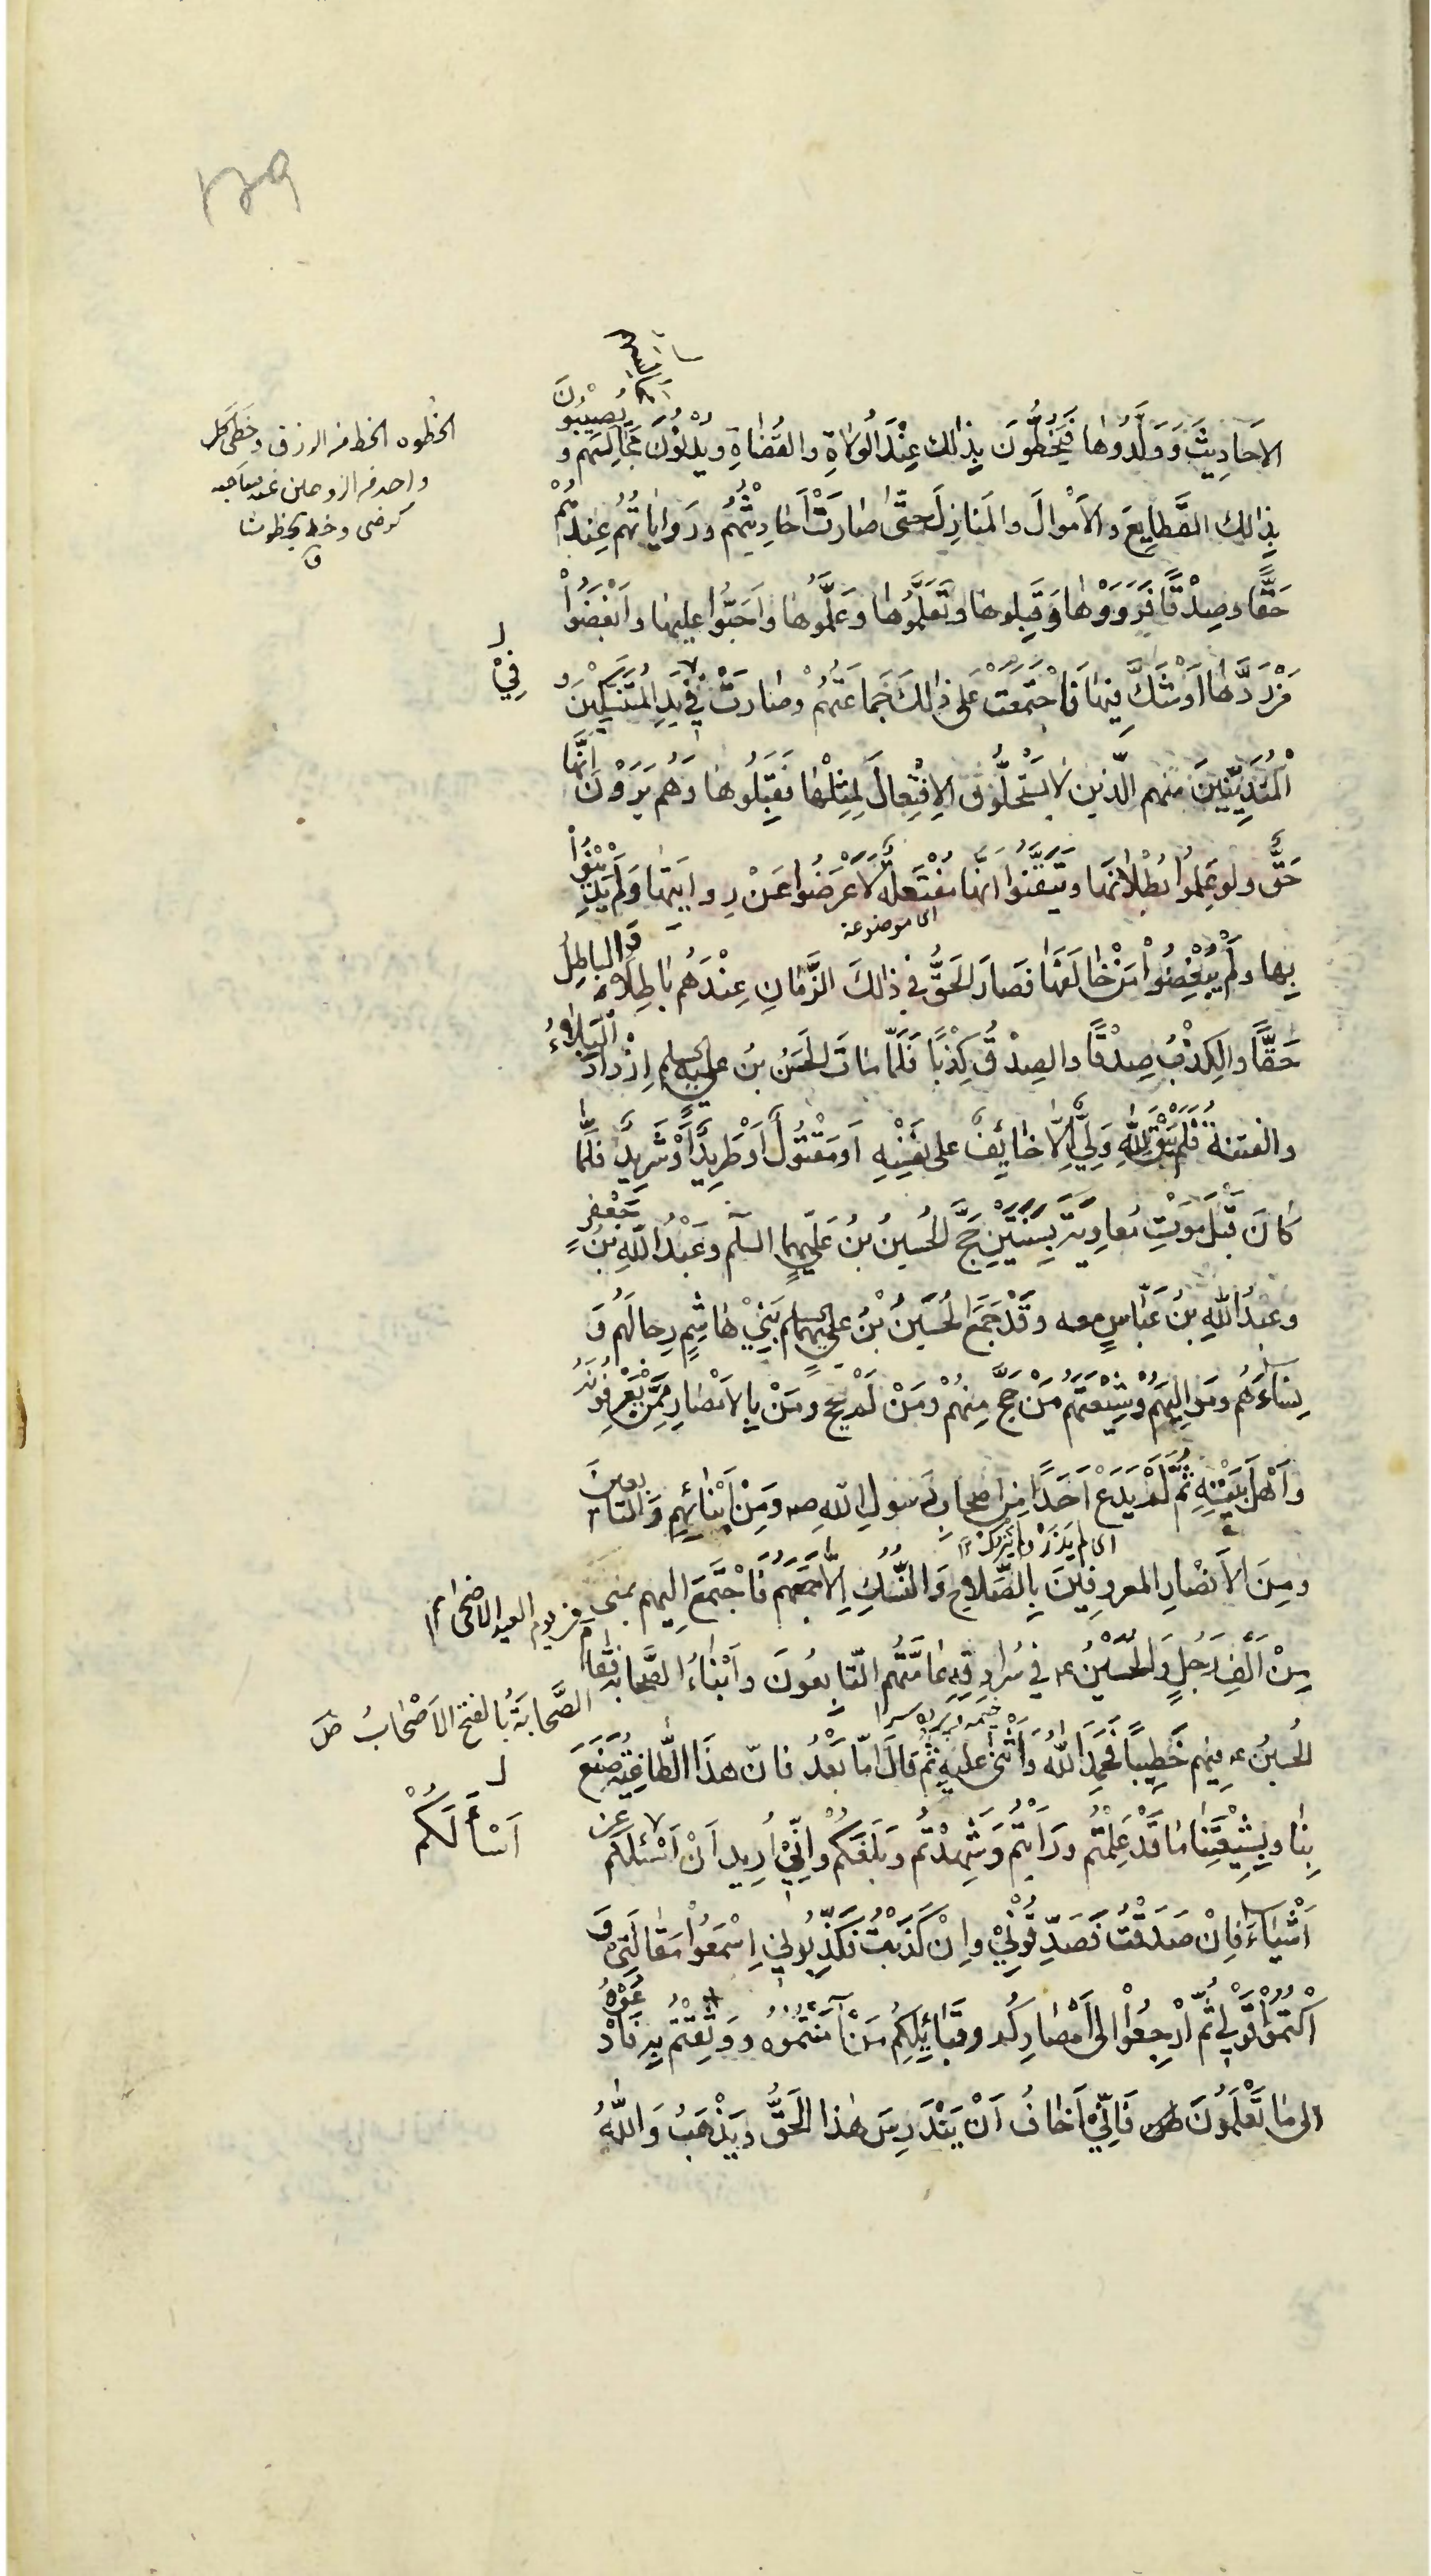 ١٢٩
الاَحَادِيثَ وَوَلَّدُوهٰا فَيَحْظُّونَ بِذٰالِك عِنْدَ الوُلاٰةِ والقُضٰاةِ ويُدْنُوْنَ مَجٰالِسَهم و يُصيْبُونَ
بِذٰالِك القَطايِعَ والاَمْوالَ والمَنازِلَ حتّىٰ صٰارَتْ اَحٰادِيْثُهُم ورَواياتُهُم عِندهُمْ
حَقًّا وصِدْقًا فَرَوَوْهٰا وَقَبِلوهٰا وتَعَلَّمُوهٰا وعَلَّمُوهٰا واَحَبُّوا عليهٰا واَبْغَضُوْا
مَنْ رَدَّهٰا اَوْ شَكَّ فِيهٰا فَاجْتَمَعَتْ عَلىٰ ذٰالِكَ جَمٰاعَتُهُمْ وصٰارَتْ فِيْ يَدِ المُتَنَسِّكِيْنَ و
الْمُتَدَيِّنِينَ مِنهم الّذين لاٰ يَسْتَحِلُّونَ الاِفْتِعالَ لِمِثْلِهٰا فَقَبِلُوهٰا وَهُم يَرَوْنَ اَنَّهٰا
حَقٌّ ولو عَلِمُوا بُطْلاٰنَهٰا وتَيَقَّنُوا انَّهٰا مُفْتَعَلَةٌ لاَعْرَضُوا عَنْ رِوايَتِهٰا وَلَمْ يَدِينُوْا
اى موضوعة
بِها ولَمْ يُبْغِضُوْا مَنْ خٰالَفَهٰا فَصٰارَ الحَقُّ في ذٰالكَ الزَّمٰانِ عِنْدَهُم بٰاطِلاً وَالبٰاطِلُ
حَقًّا والكِذْبُ صِدْقًا والصِدْقُ كِذْبًا فَلَمّا مٰاتَ الحَسَنُ بنُ علي عليه السلم اِزْدادَ الْبَلاٰءُ
والفتنةُ فَلَمْ يَبْقَ لِلّٰهِ وَلِيٌّ اِلّا خٰائِفٌ على نَفْسِهِ اَو مَقْتُولٌ اَوْ طَرِيدٌ اَوْ شَرِيدٌ فلَمّٰا
كٰانَ قَبْلَ مَوْتِ مُعٰاوِيَةَ بِسَنَتَيْنِ حَجَّ الحُسينُ بنُ عَلِيٍّ عليهما السلم وعَبْدُ اللّٰهِ بنُ جَعْفرٍ
وعبدُ اللّٰهِ بنُ عَبّٰاسٍ معه وقَدْ جَمَعَ الحُسَيْنُ بْنُ علي عليهما السلم بَنِيْ هٰاشِمٍ رِجالَهُم وَ
نِساءَهُم ومَوٰالِيَهِمْ وشِيْعَتَهُم مَنْ حَجَّ مِنهُمْ ومَنْ لَمْ يحج ومَنْ بِالاَمْصٰارِ مِمَّنْ يَعْرِفُونَهُ
واَهْلَ بَيْتِهِ ثُمَّ لَمْ يَدَعْ اَحَدًا مِن اصحابِ رَسولِ اللّٰهِ صه ومِنْ اَبْنٰائِهِم وَالتٰابعينَ
اى لم يَذَرْ ولم يَتْرك
ومِنَ الاَنْصٰارِ المعروفِيْنَ بِالصَّلاٰحِ وَالنُّسُكِ اِلّٰا جَمَعَهُم فَاجْتَمَعَ اِليهِم بمنى
مِنْ اَلْفِ رَجُلٍ والحُسَيْنُ عه في سُرٰادِقِهِ عٰامَّتُهُم التّابِعُونَ واَبْنٰاءُ الصَّحابة فَقٰامَ
الحُسينُ عه فيهِم خَطِيبًا فَحَمِدَ اللّٰهَ وَاَثْنىٰ عليهِ ثُمَّ قالَ امّا بَعْدُ فانّ هذَا الطّاغِيَةَ صَنَعَ
بِنٰا وبِشِيْعَتِنٰا مٰا قَدْ عَلِمْتُم ورَاَيْتُم وَشَهِدْتُم وبَلَغَكُمْ واِنِّيْ اُرِيد اَنْ اَسْئلَكُم عن
اَشْيٰاءَ فاِنْ صَدَقْتُ فَصَدِّقُوْنِيْ واِنْ كَذَبْتُ فَكَذِّبُوني اِسْمَعُوْا مَقٰالَتِىْ وَ
اكْتُمُوْا قَوْلي ثُمَّ ارْجِعُوْا الى اَمْصٰارِكُم وقَبٰائِلِكُم مَنْ آمَنْتُمُوْهُ ووَثِقْتُمْ بِهِ فَادْعُوْهُ
الى مٰا تَعْلَمُونَ فَاِنِّيْ اَخٰافُ اَنْ يَنْدَرِسَ هٰذا الحَقُّ ويَذْهَبُ وَاللّٰهُ
الحُظوه الحظ من الرزق وحَظِىَ كل
واحد من الزوجين عند صاحبه
كرضى
ق
فِيْ
يوم العيد الاضحىٰ
الصَّحٰابَةُ بالفتح الاَصْحٰابُ
اَسْأَلَكُمْ